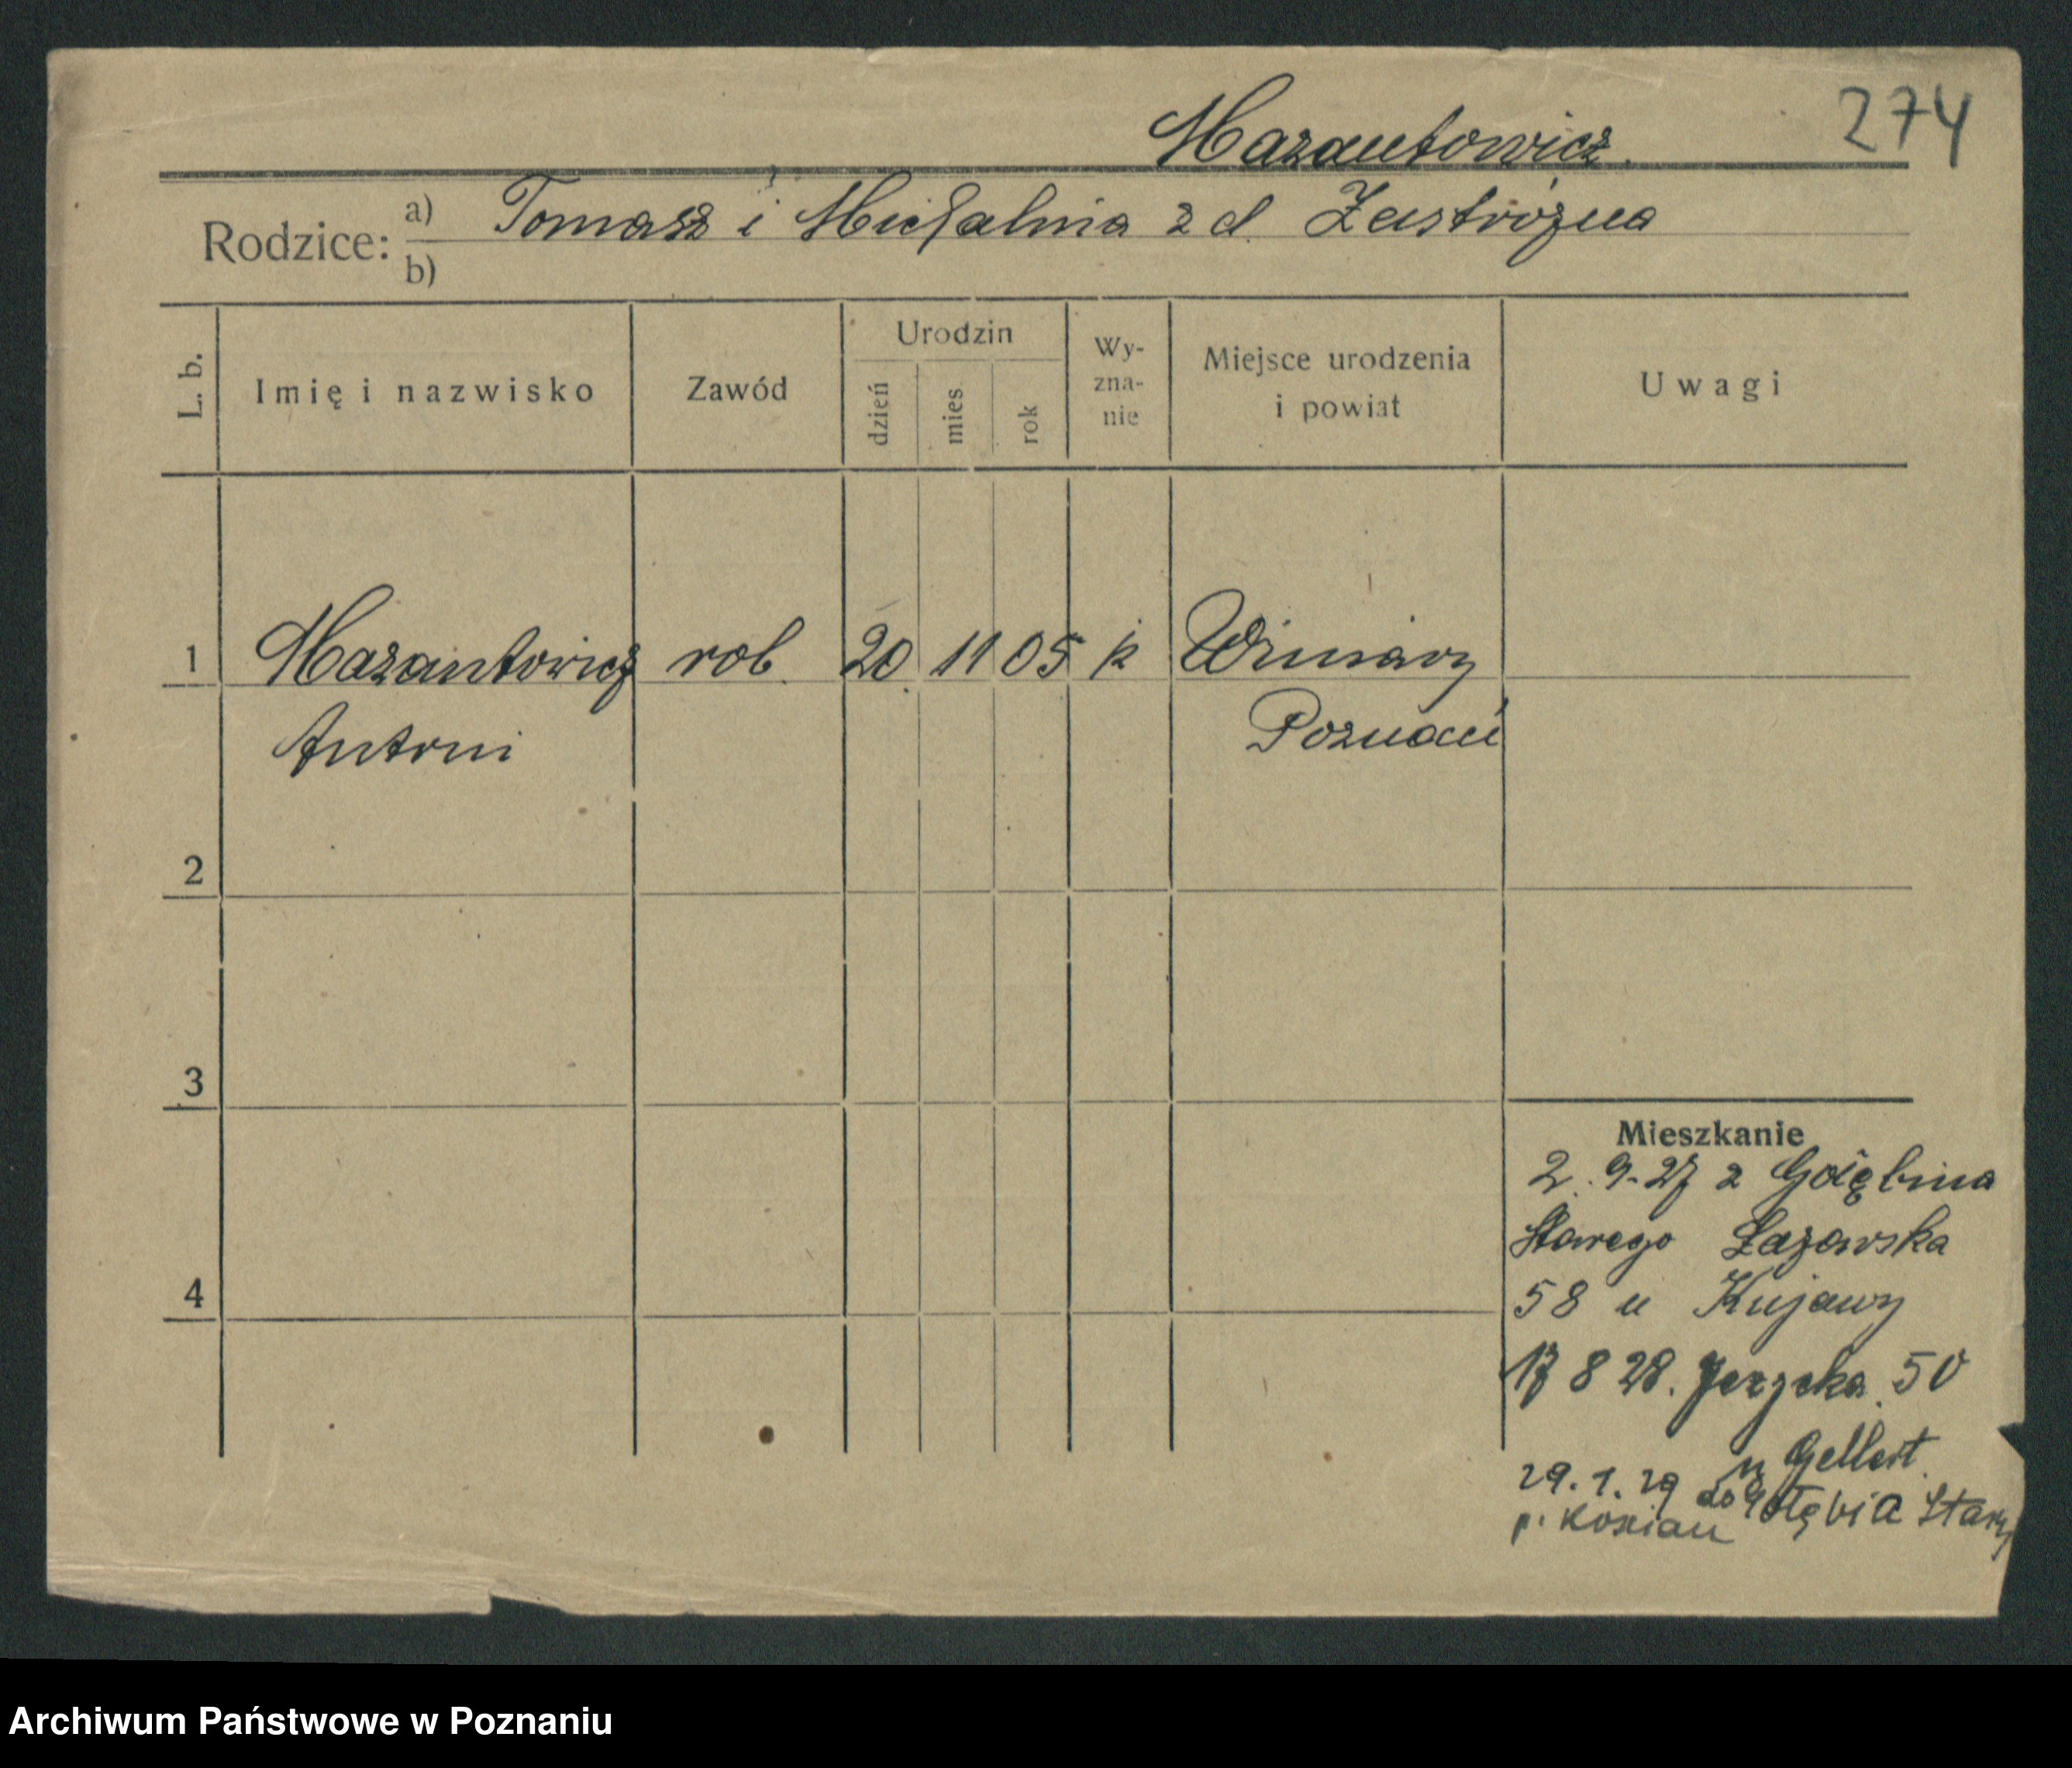 274
Mazantowicz.
Rodzice: a) Tomasz i Michalina z d. Zastróżna
b)
L. b. Imię i nazwisko Zawód Urodzin dzień mies rok Wy-zna-nie Miejsce urodzenia i powiat Uwagi
1 Mazantowicz rob. 20 11 05 k Winiary
Antoni Poznań
2
3
4
Mieszkanie
2. 9. 27 z Gołębina
Starego Łazarska
58 u Kujawy
17 8 28. Jeżycka 50
u Gellert
29.1.29 do Gołębia Stary
p. Kościan
Archiwum Państwowe w Poznaniu